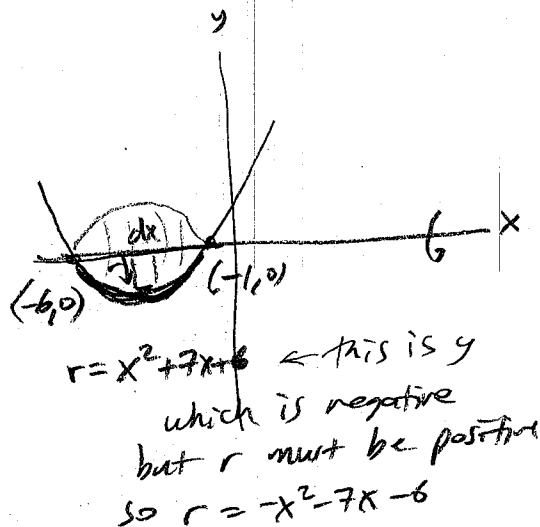 y
x
dx
(-6,0)
(-1,0)
r = x²+7x+6 ← this is y
which is negative
but r must be positive
so r = -x²-7x-6